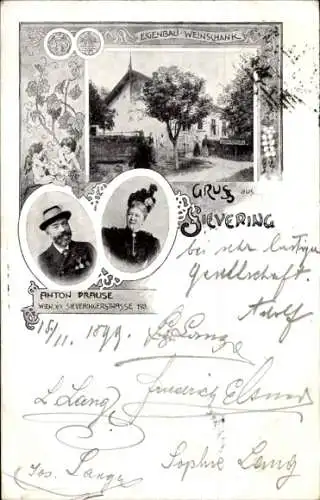 EIGENBAU-WEINSCHANK
GRUSS AUS
SIEVERING
ANTON PRAUSE
WIEN, XIX SIEVERINGERSTRASSE
bei sehr lustiger
Gesellschaft.
Adolf
18/11. 1899.
Lange
L Lang
Friedrich Elsner
Sophie Lang
Jos. Lange